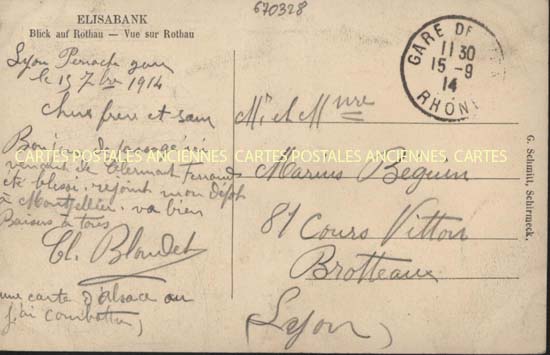 ELISABANK
Blick auf Rothau — Vue sur Rothau
670328
Lyon Perrache gare
le 15 7bre 1914
chers frère et sœur
Bonjour de passage ici
venant de Clermont Ferrand
été blessé. rejoint mon dépôt
à Montpellier. va bien
Baisers à tous
Cl. Blondet
une carte d'alsace ou
j'ai combattu)
GARE DE
11 30
15 - 9
14
RHÔNE
Mr et Mme
Marius Béguin
81 Cours Vitton
Brotteaux
(Lyon)
G. Schmitt, Schirmeck.
CARTES POSTALES ANCIENNES CARTES POSTALES ANCIENNES CARTES